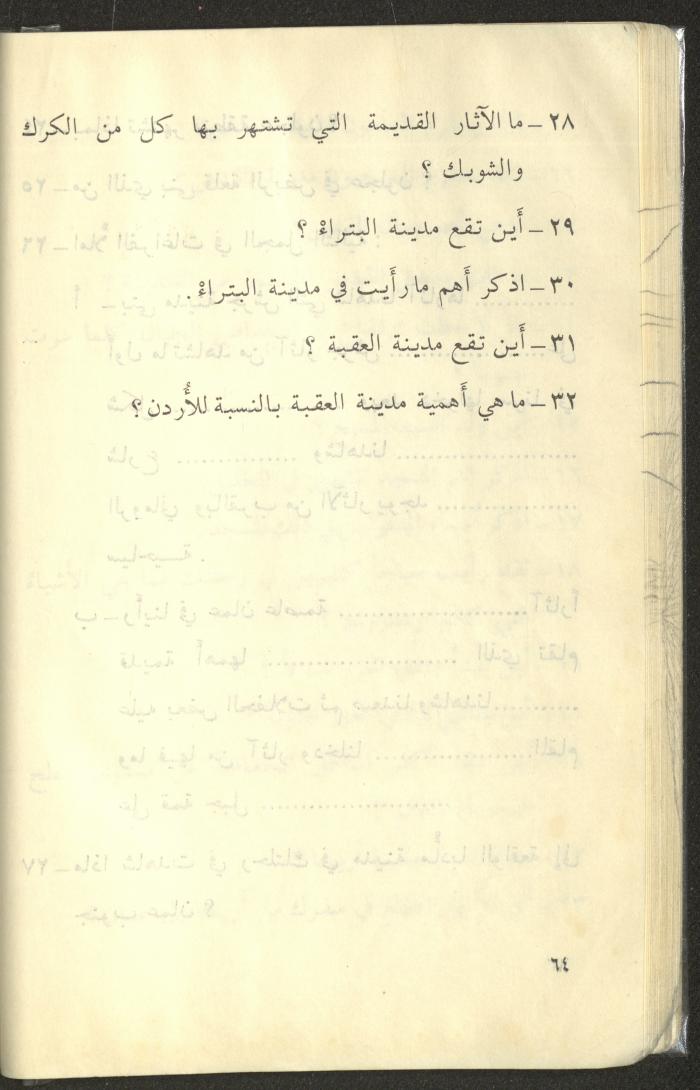 ٢٨ – ما الآثار القديمة التي تشتهر بها كل من الكرك
والشوبك ؟
٢٩ – أَين تقع مدينة البتراءْ ؟
٣٠ – اذكر أَهم ما رأَيت في مدينة البتراءْ .
٣١ – أَين تقع مدينة العقبة ؟
٣٢ – ما هي أَهمية مدينة العقبة بالنسبة للأُردن ؟
٦٤